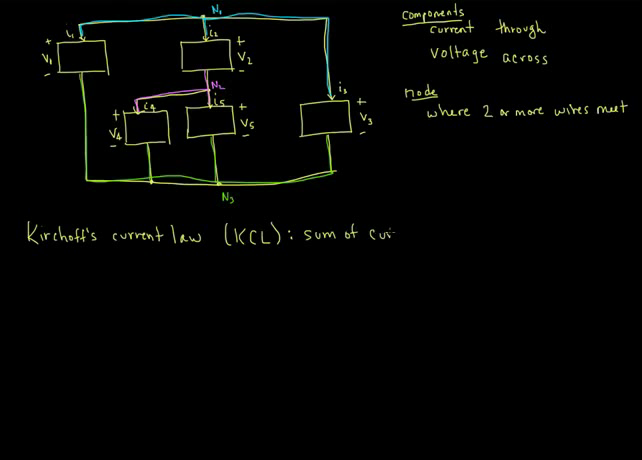 N₁
i₁
i₂
+ V₁ -
+ V₂ -
N₂
i₃
i₄
i₅
+ V₄ -
+ V₅ -
+ V₃ -
N₃
Components
current through
voltage across
node
where 2 or more wires meet
Kirchoff's current law (KCL): sum of